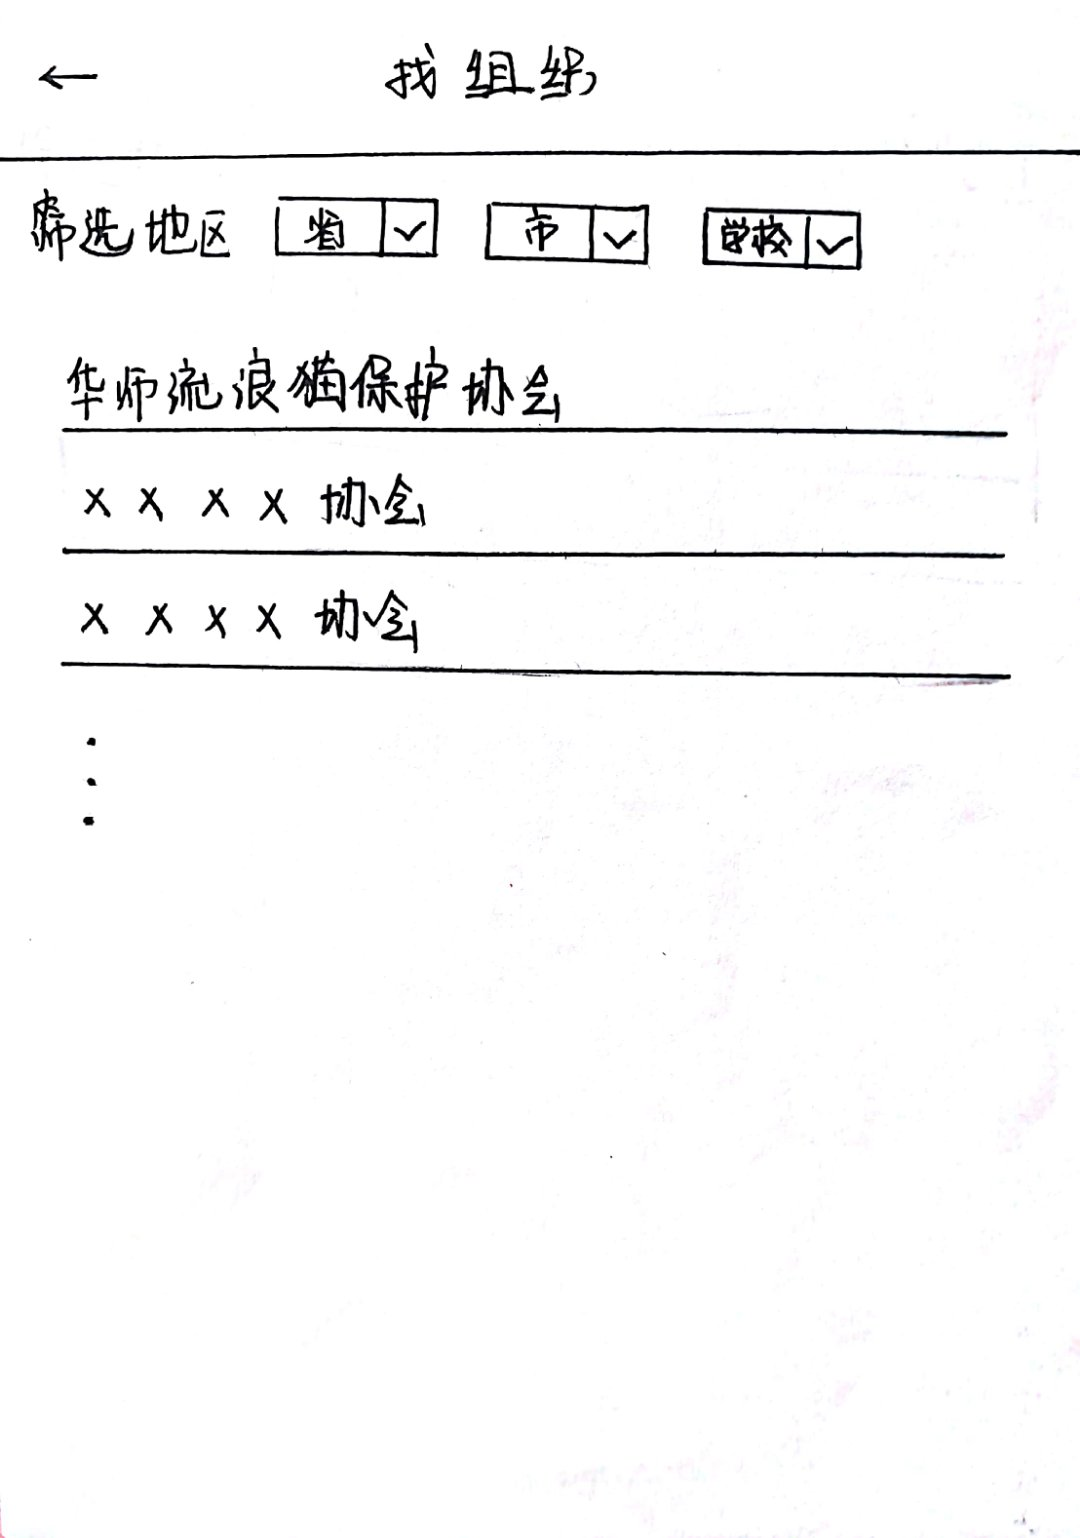 ← 找组织
筛选地区 省 市 学校
华师流浪猫保护协会
x x x x 协会
x x x x 协会